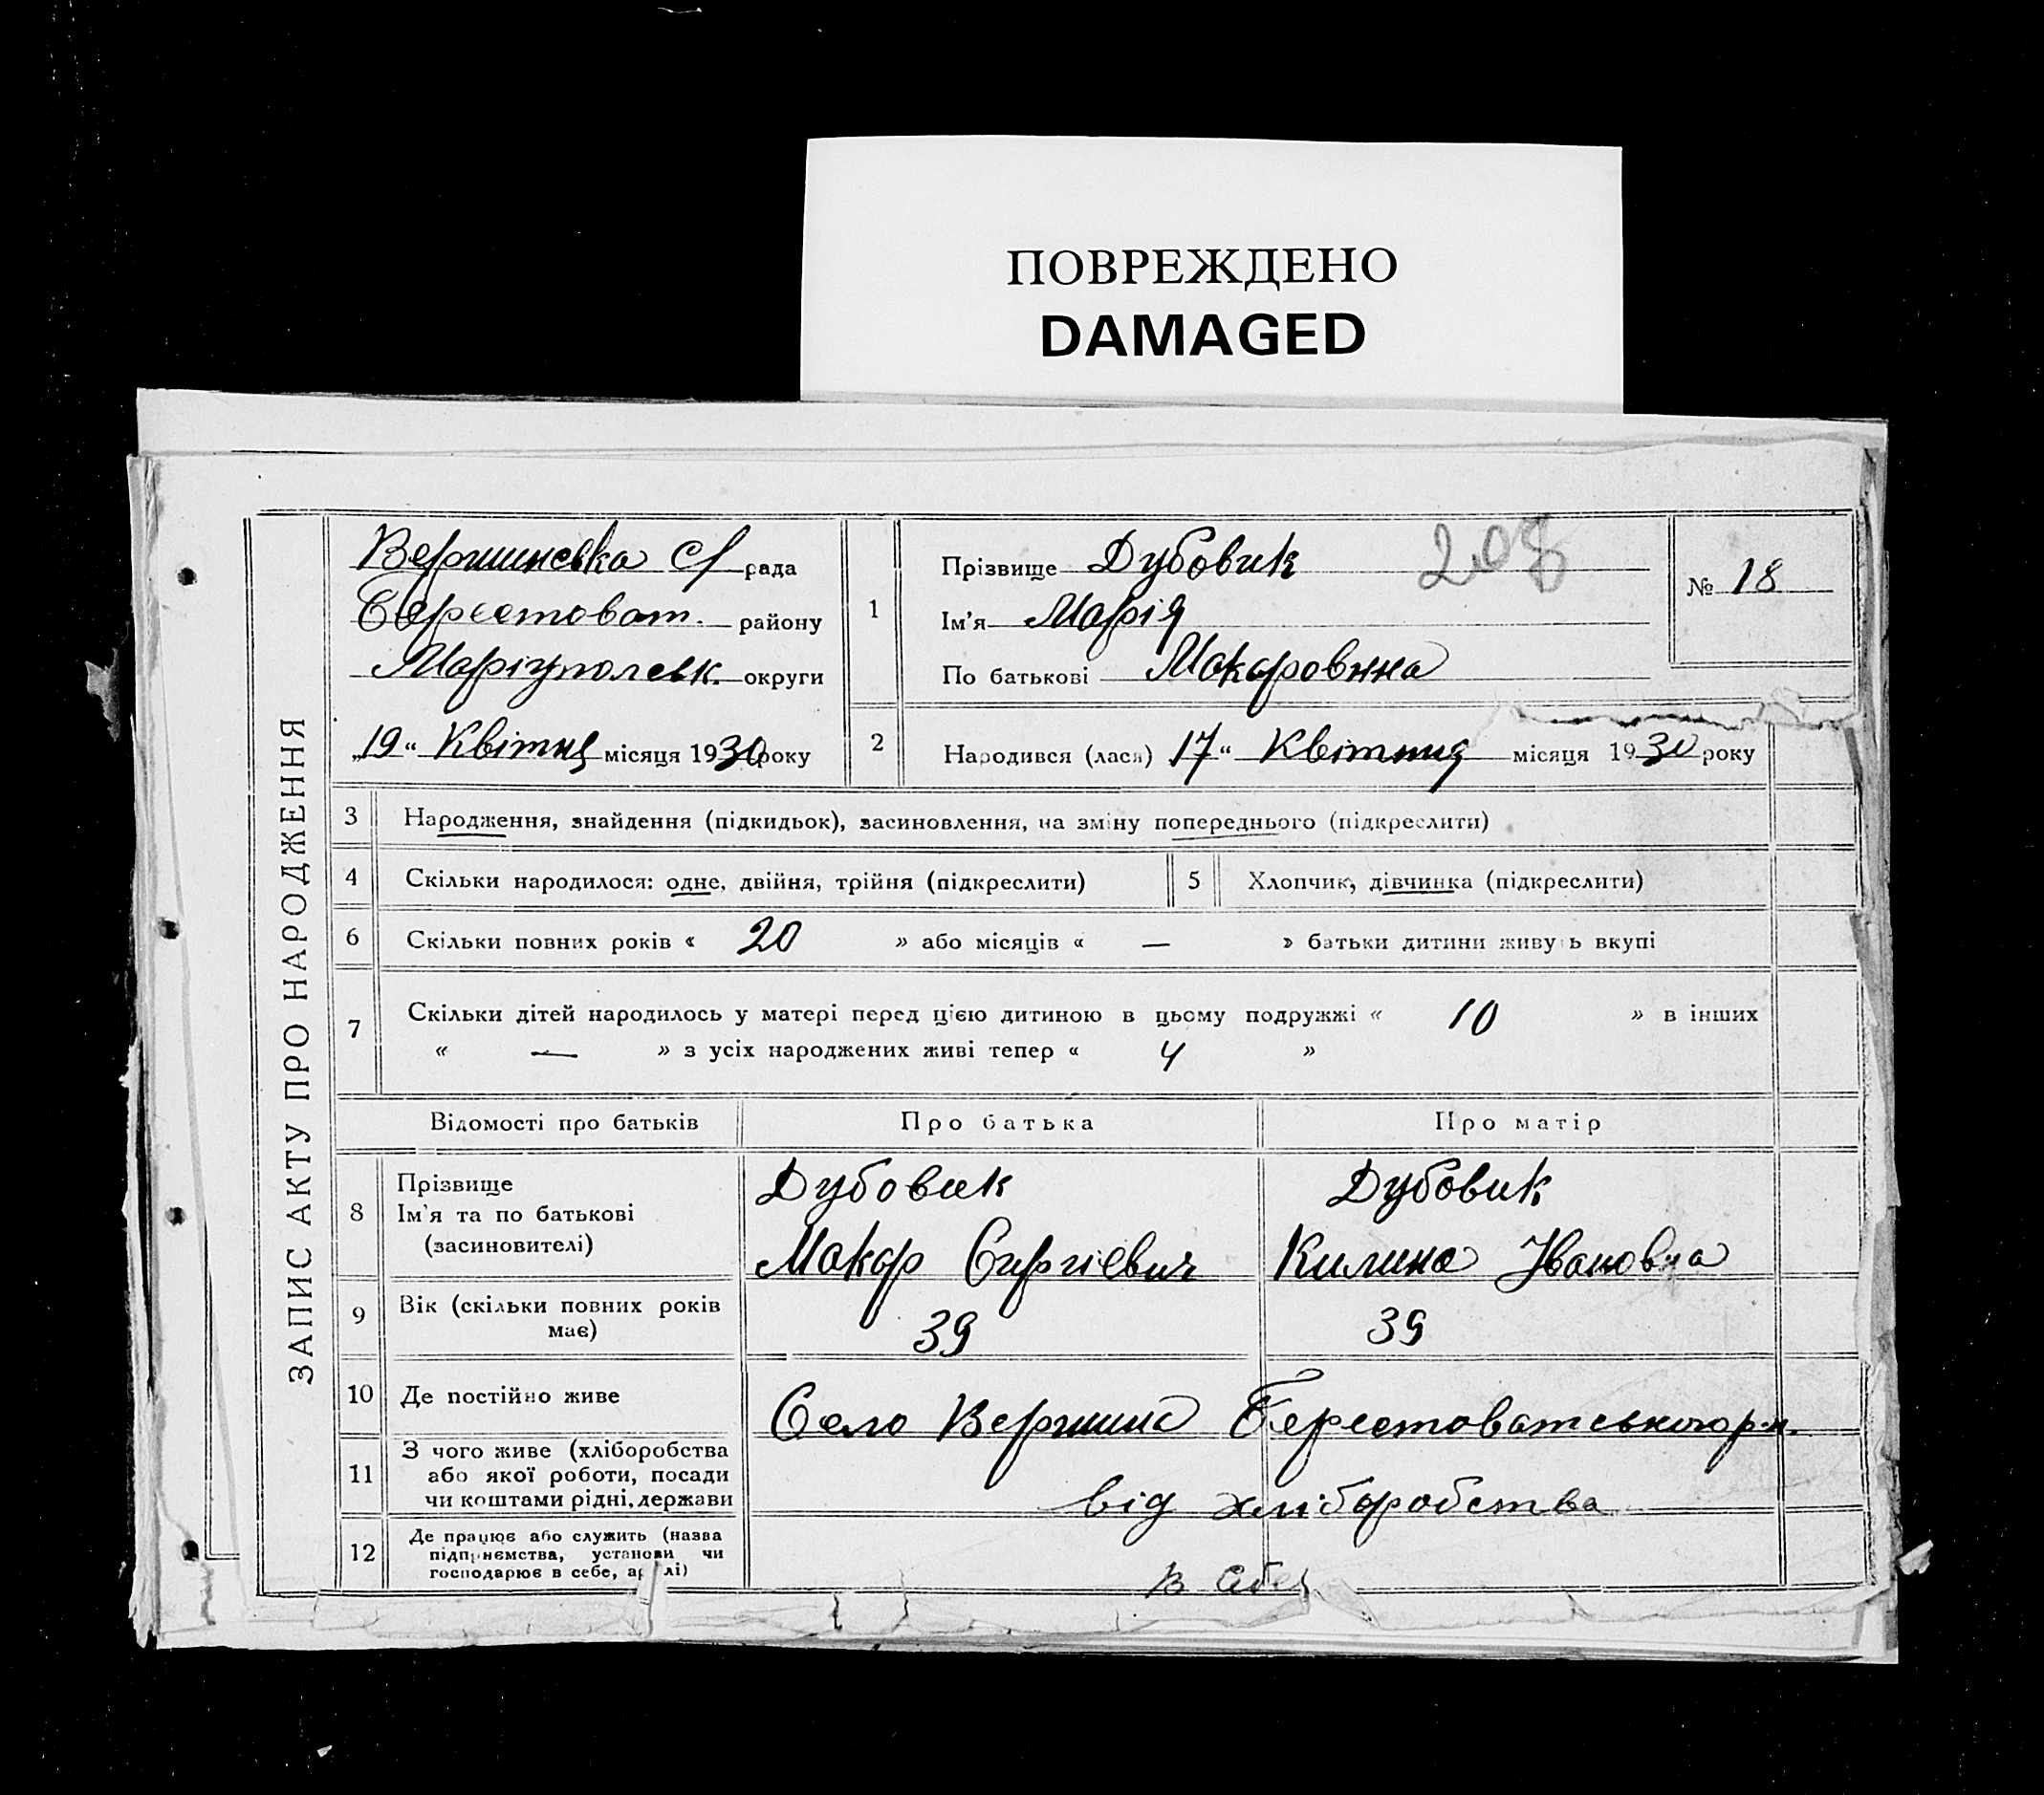 ПОВРЕЖДЕНО
DAMAGED
ЗАПИС АКТУ ПРО НАРОДЖЕННЯ
Вершинська с/ рада
Берестоват. району
Маріупольськ. округи
„19“ Квітня місяця 1930 року
1
Прізвище Дубовик
208
№ 18
Ім'я Марія
По батькові Макаровна
2 Народився (лася) 17“ Квітня місяця 1930 року
3 Народження, знайдення (підкидьок), засиновлення, на зміну попереднього (підкреслити)
4 Скільки народилося: одне, двійня, трійня (підкреслити) 5 Хлопчик, дівчинка (підкреслити)
6 Скільки повних років « 20 » або місяців « — » батьки дитини живуть вкупі
7 Скільки дітей народилось у матері перед цією дитиною в цьому подружжі « 10 » в інших
« — » з усіх народжених живі тепер « 4 »
Відомості про батьків Про батька Про матір
8 Прізвище Дубовик Дубовик
Ім'я та по батькові
(засиновителі) Макар Сиргієвич Килина Івановна
9 Вік (скільки повних років
має) 39 39
10 Де постійно живе Село Вершина Берестоватського р-н.
11 З чого живе (хліборобства
або якої роботи, посади
чи коштами рідні, держави від хліборобства
12 Де працює або служить (назва
підприємства, установи чи
господарює в себе, ар лі) В себе